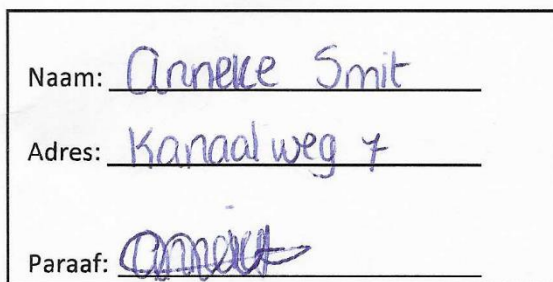 Naam: Anneke Smit
Adres: Kanaalweg 7
Paraaf: